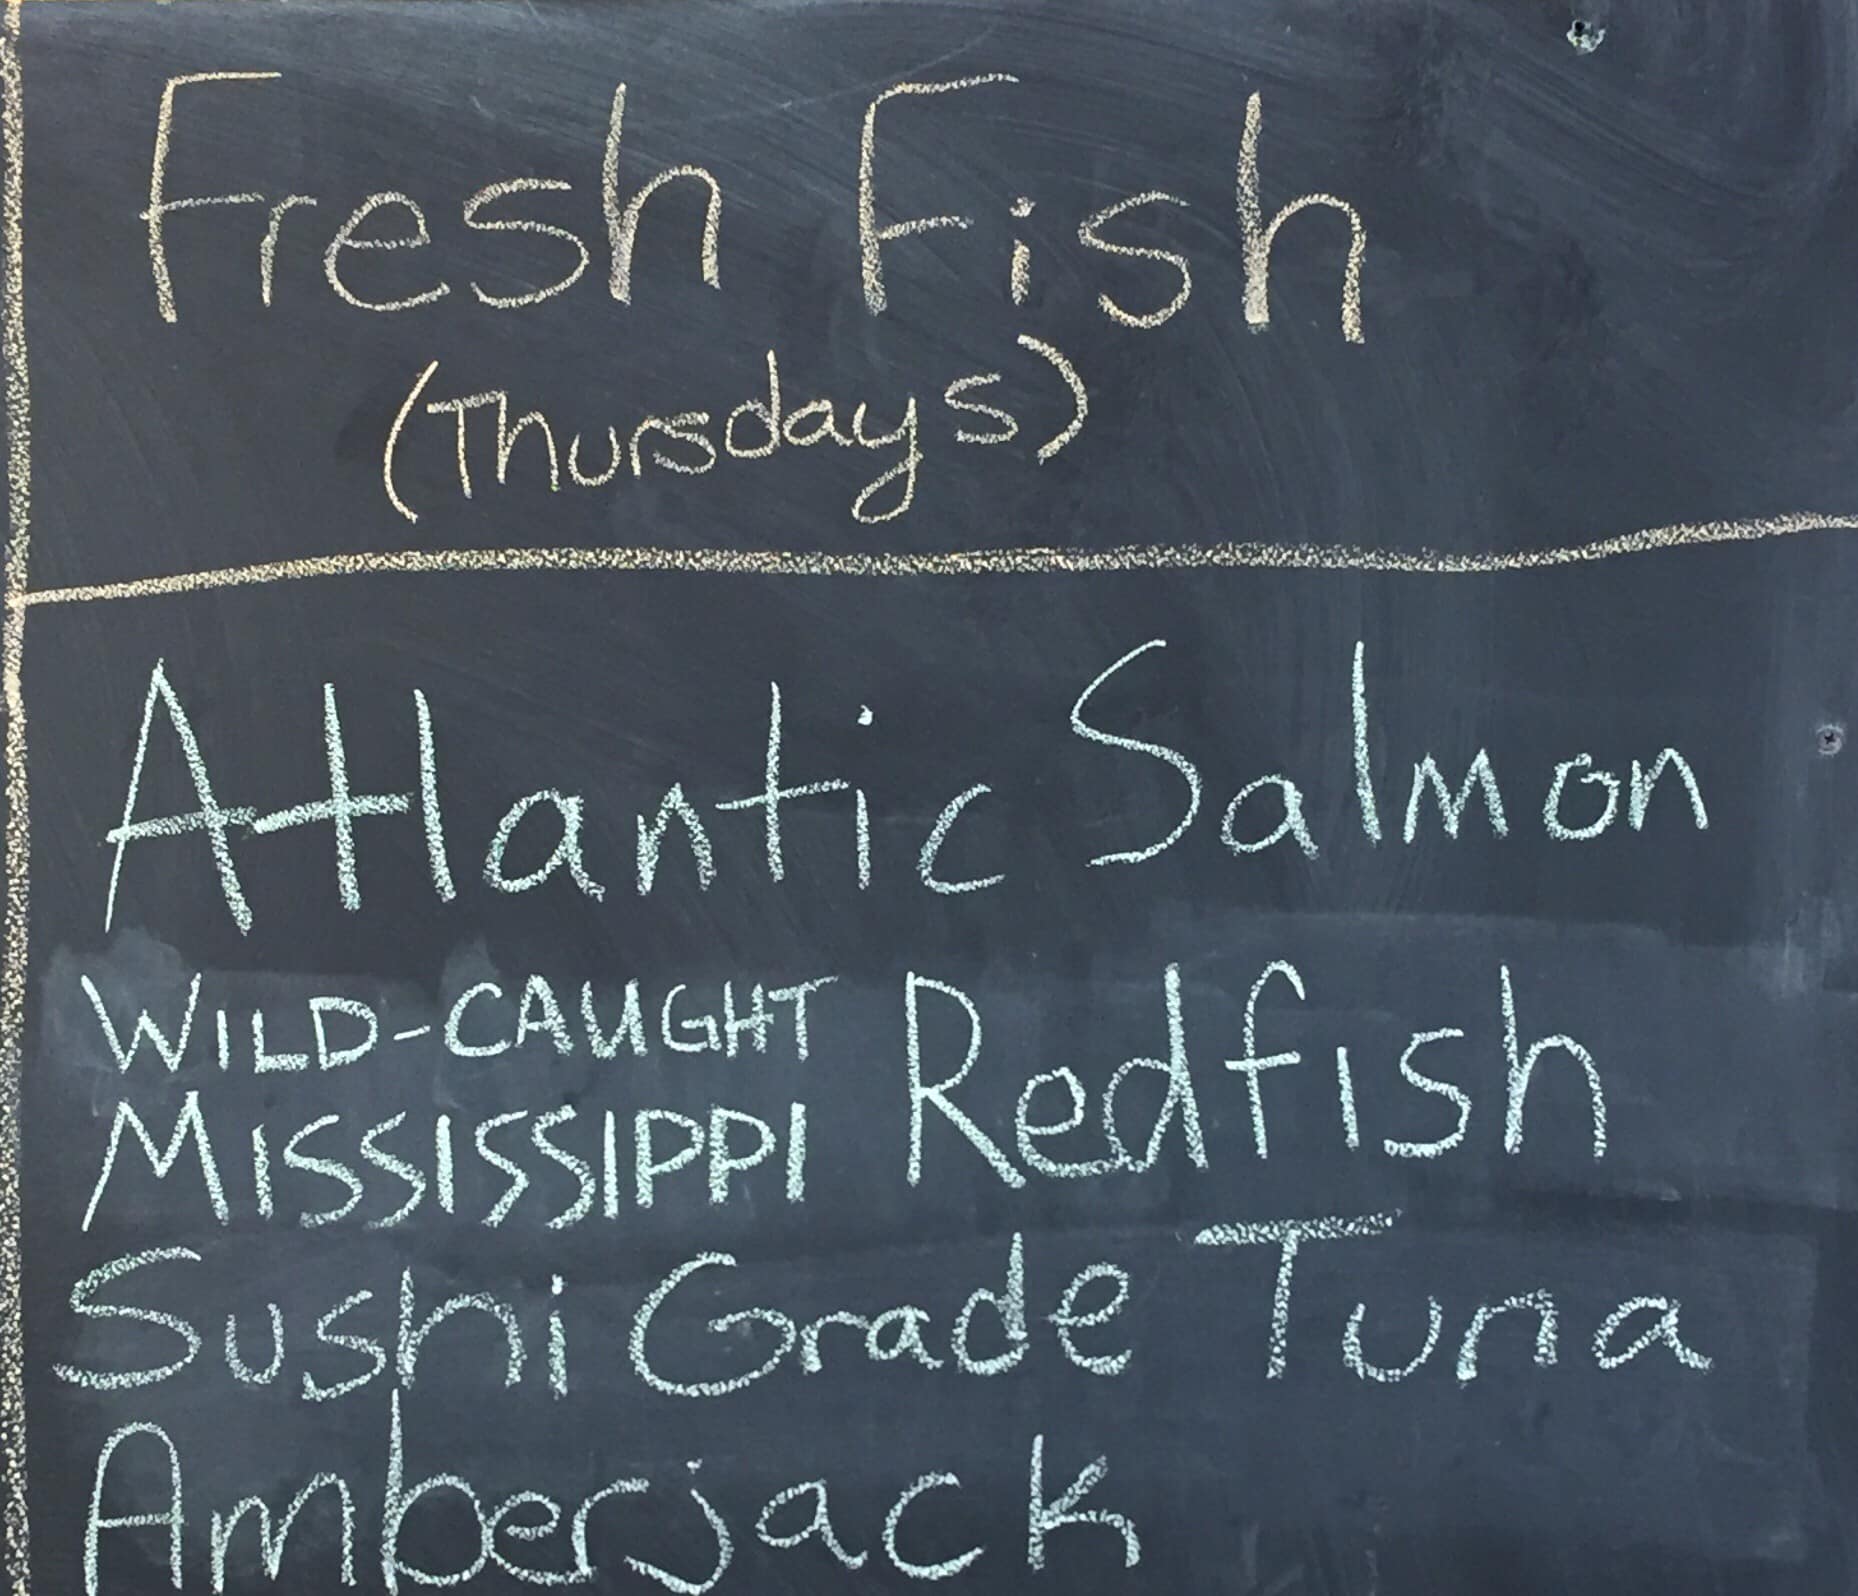 Fresh Fish
(Thursdays)
Atlantic Salmon
WILD-CAUGHT
MISSISSIPPI Redfish
Sushi Grade Tuna
Amberjack